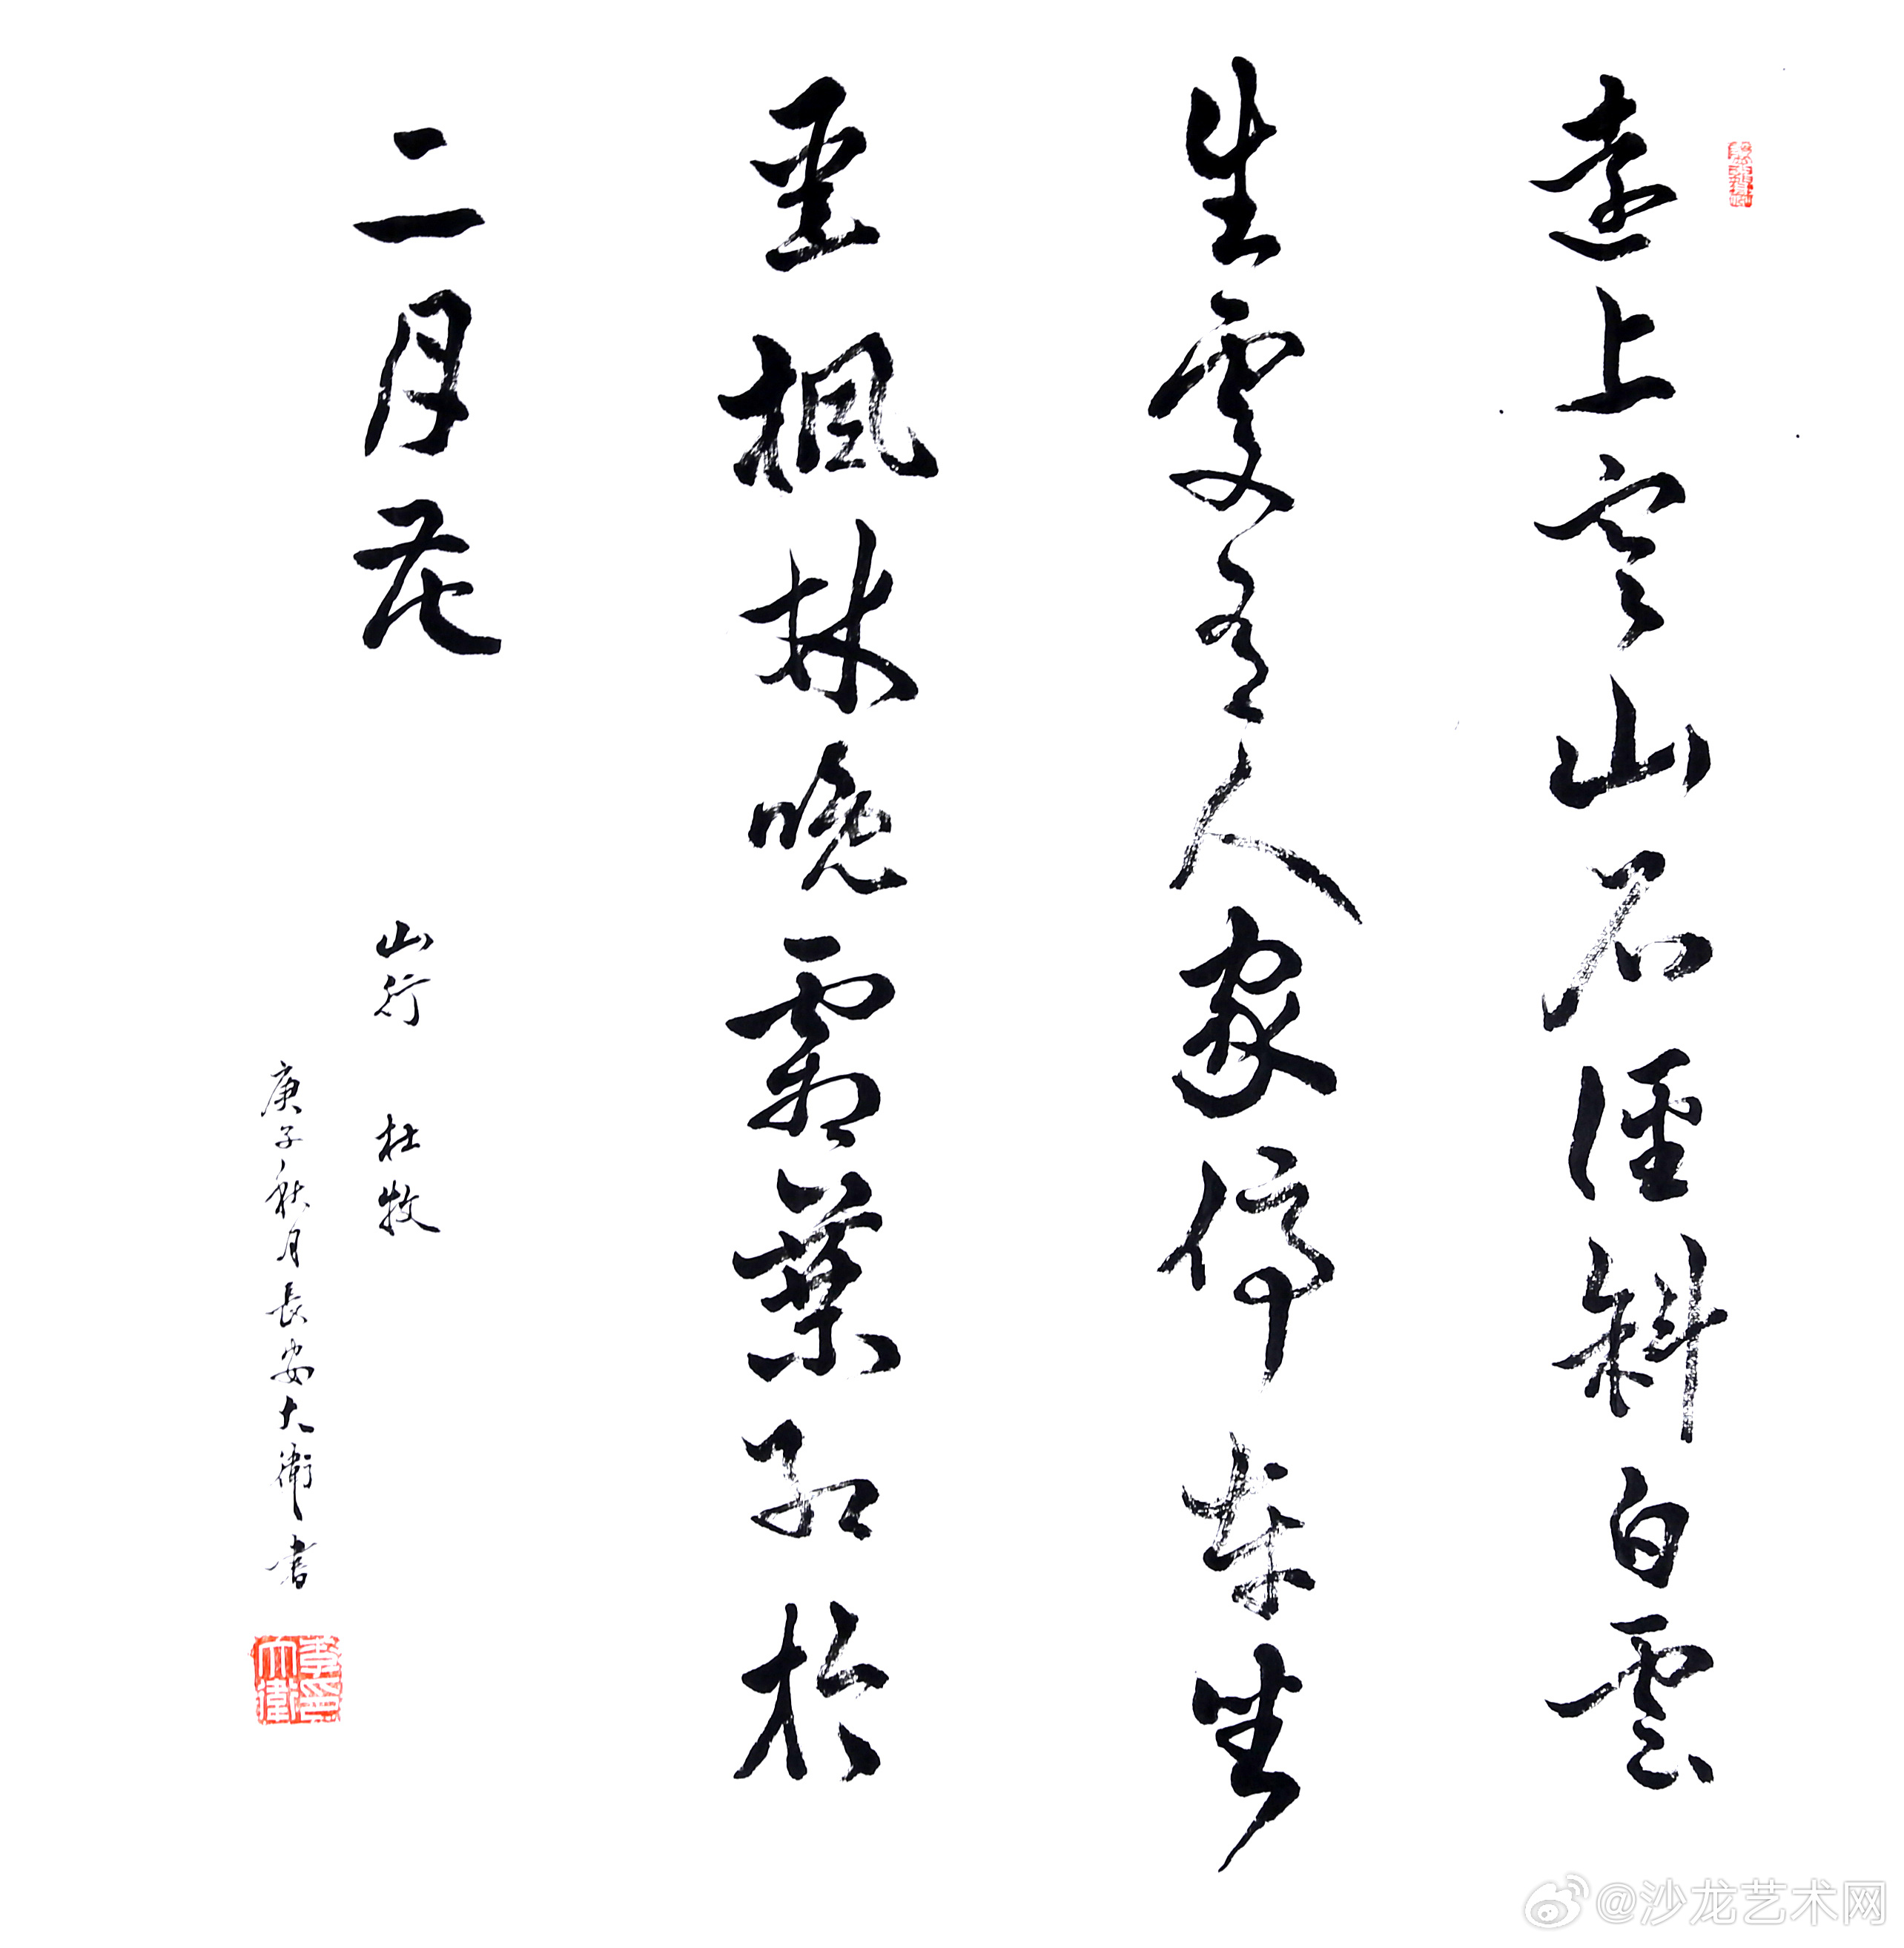 遠上寒山石徑斜白雲
生處有人家停車坐
愛楓林晚霜葉紅於
二月花
山行 杜牧
庚子秋月長安大衛書
李印大衛
@沙龙艺术网